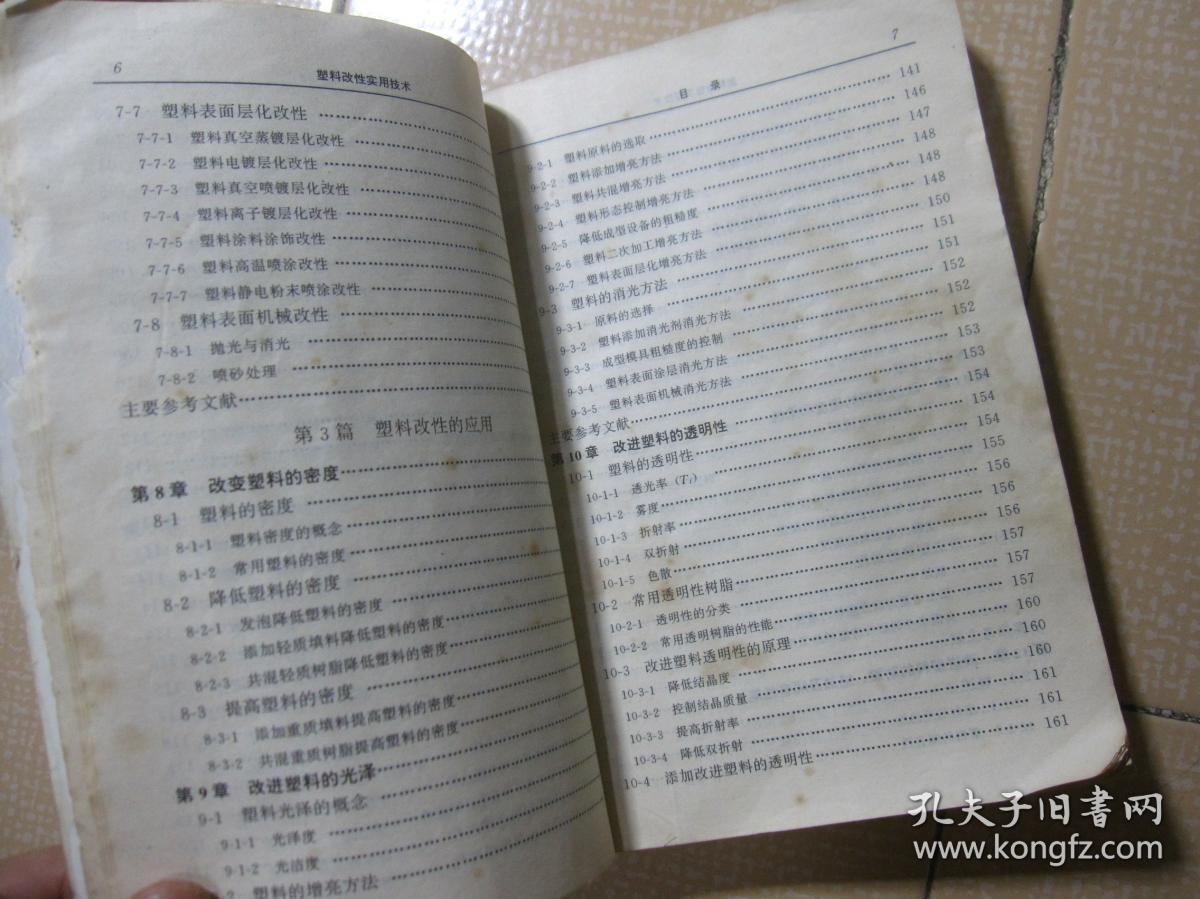 6
塑料改性实用技术
7-7 塑料表面层化改性
7-7-1 塑料真空蒸镀层化改性
7-7-2 塑料电镀层化改性
7-7-3 塑料真空喷镀层化改性
7-7-4 塑料离子镀层化改性
7-7-5 塑料涂料涂饰改性
7-7-6 塑料高温喷涂改性
7-7-7 塑料静电粉末喷涂改性
7-8 塑料表面机械改性
7-8-1 抛光与消光
7-8-2 喷砂处理
主要参考文献
第3篇 塑料改性的应用
第8章 改变塑料的密度
8-1 塑料的密度
8-1-1 塑料密度的概念
8-1-2 常用塑料的密度
8-2 降低塑料的密度
8-2-1 发泡降低塑料的密度
8-2-2 添加轻质填料降低塑料的密度
8-2-3 共混轻质树脂降低塑料的密度
8-3 提高塑料的密度
8-3-1 添加重质填料提高塑料的密度
8-3-2 共混重质树脂提高塑料的密度
第9章 改进塑料的光泽
9-1 塑料光泽的概念
9-1-1 光泽度
9-1-2 光洁度
2 塑料的增亮方法
目 录
7
9-2-1 塑料原料的选取 141
9-2-2 塑料添加增亮方法 146
9-2-3 塑料共混增亮方法 147
9-2-4 塑料形态控制增亮方法 148
9-2-5 降低成型设备的粗糙度 148
9-2-6 塑料二次加工增亮方法 148
9-2-7 塑料表面层化增亮方法 150
9-3 塑料的消光方法 151
9-3-1 原料的选择 151
9-3-2 塑料添加消光剂消光方法 152
9-3-3 成型模具粗糙度的控制 152
9-3-4 塑料表面涂层消光方法 152
9-3-5 塑料表面机械消光方法 153
主要参考文献 153
第10章 改进塑料的透明性 154
10-1 塑料的透明性 154
10-1-1 透光率(Tt) 154
10-1-2 雾度 155
10-1-3 折射率 156
10-1-4 双折射 156
10-1-5 色散 156
10-2 常用透明性树脂 157
10-2-1 透明性的分类 157
10-2-2 常用透明树脂的性能 157
10-3 改进塑料透明性的原理 160
10-3-1 降低结晶度 160
10-3-2 控制结晶质量 160
10-3-3 提高折射率 161
10-3-4 降低双折射 161
10-4 添加改进塑料的透明性 161
孔夫子旧书网
www.kongfz.com